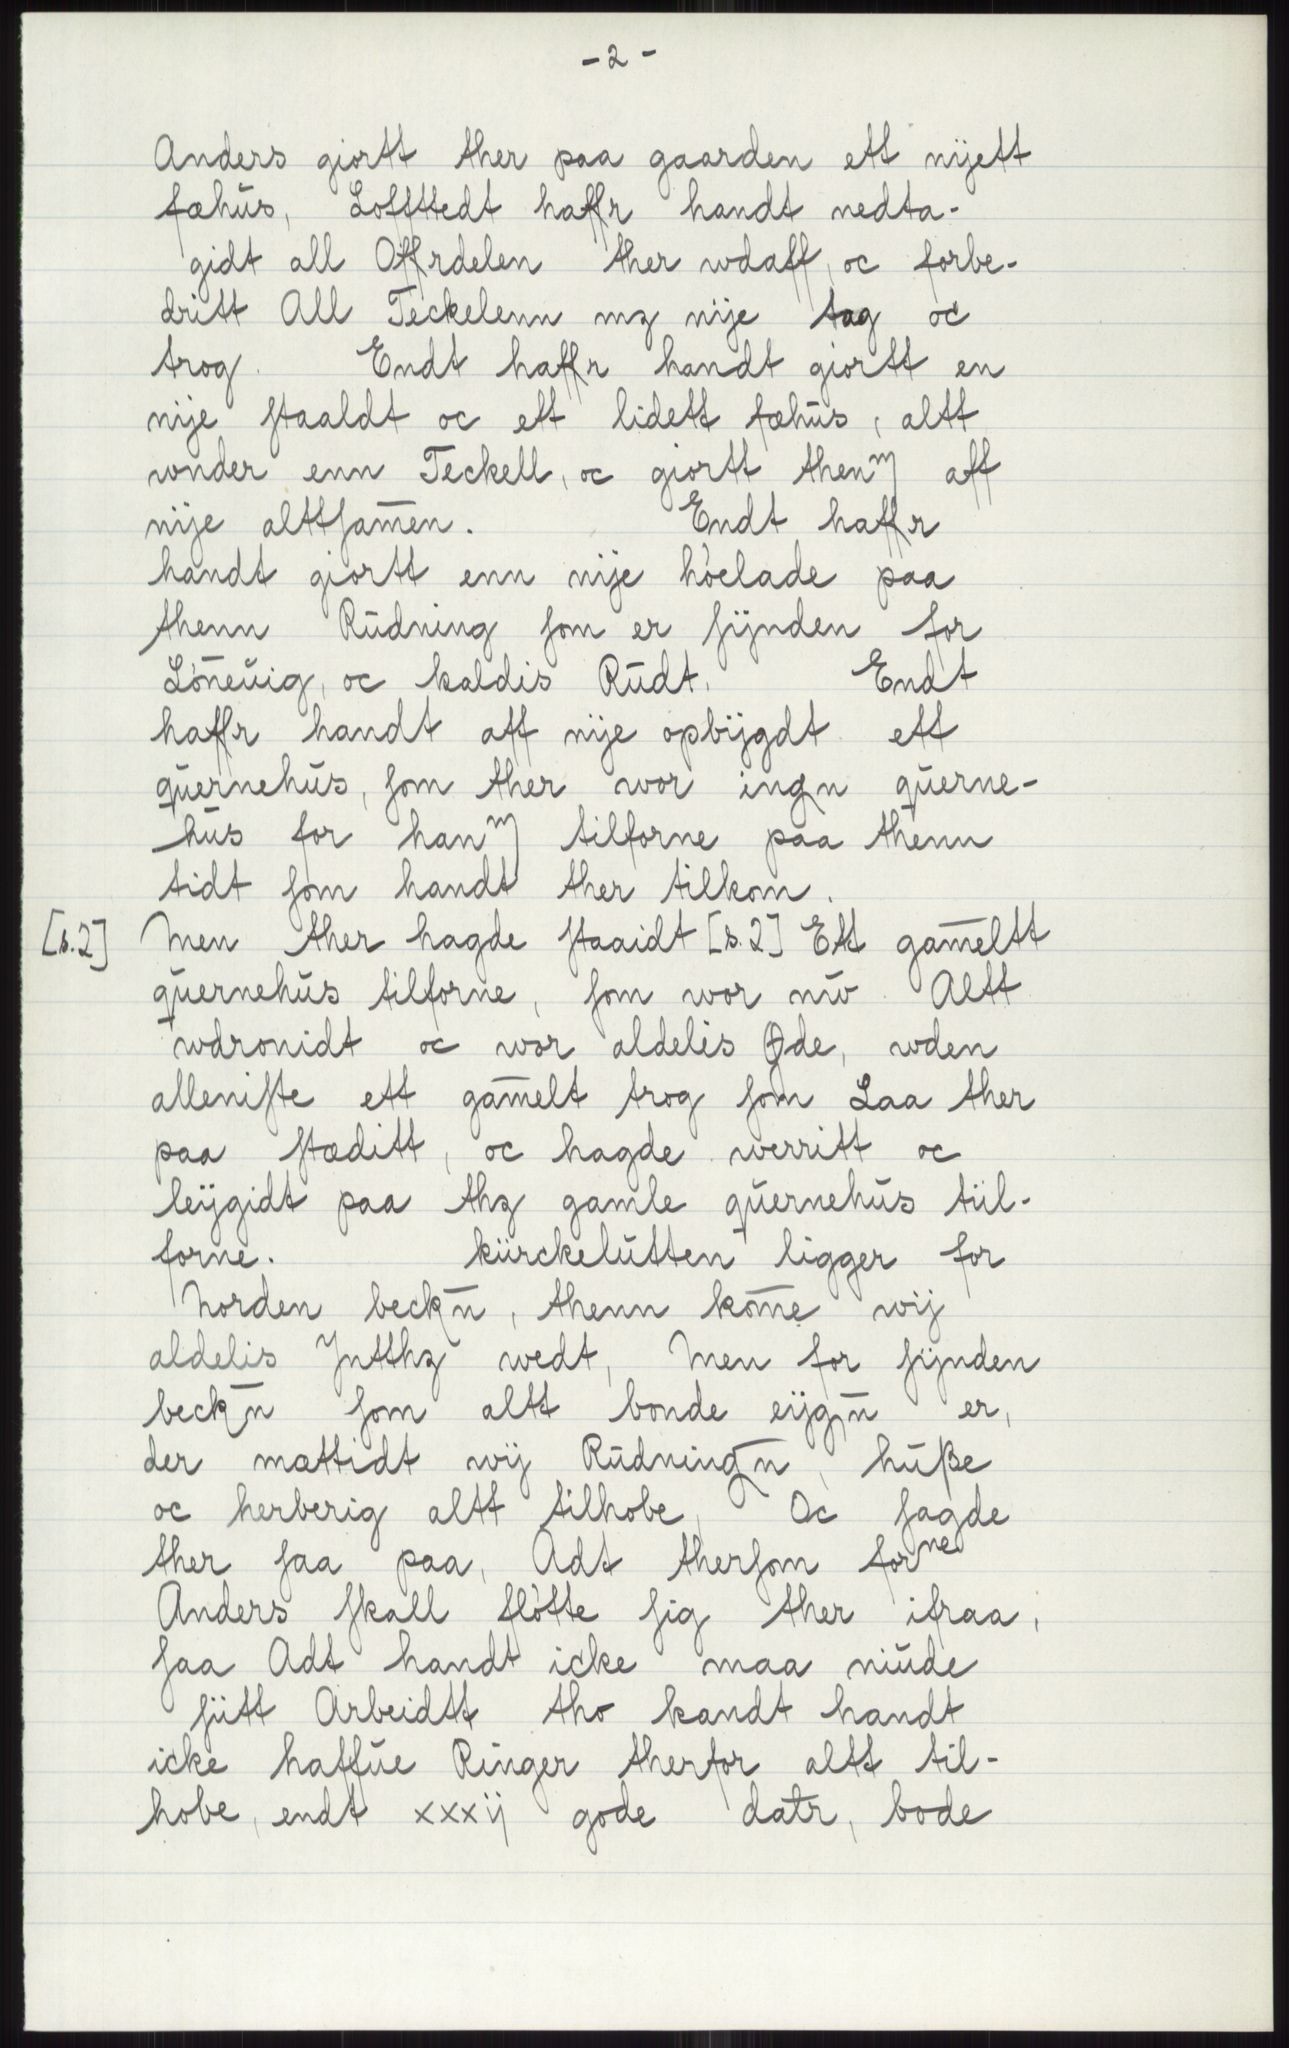 - 2 -
Anders giortt ther paa gaarden ett nijett
fæhūs, Loffttedt haffr handt nedta-
gidt all Offrdelen ther wdaff, oc forbe-
dritt All Teckelenn mz nije tag oc
trog. Endt haffr handt giortt en
nije ſtaaldt oc ett lidett fæhūs, altt
wnder enn Teckell, oc giortt thenm aff
nije alttſam̄en. Endt haffr
handt giortt enn nije hòelade paa
thenn Rūdning ſom er ſÿnden for
Lön̄eūig, oc kaldis Rūdt. Endt
haffr handt aff nije opbÿgdt ett
qūernehūs, ſom ther wor ingn qūerne-
hūs for hanm tilforne paa thenn
tidt ſom handt ther tilkom.
[s.2] Men ther hagde ſtaaidt [s.2] Ett gam̄eltt
qūernehūs tilforne, ſom wor nūw Altt
wdronidt oc wor aldelis Øde, wden
alleniſte ett gam̄elt trog ſom Laa ther
paa ſtæditt, oc hagde werritt oc
leÿgidt paa thz gamle qūernehūs tiil-
forne. kiirckelūtten ligger for
Norden beckn̄, thenn kom̄e wij
aldelis Jntthz wedt, Men for ſÿnden
beckn̄ ſom altt bonde eÿgn̄ er,
der mættidt wij Rūdningn̄, hūße
oc herberig altt tilhobe, Oc ſagde
ther ſaa paa, Adt therſom forne
Anders ſkall flòtte ſig ther ifraa,
ſaa Adt handt icke maa niūde
ſiitt Arbeidtt tho kandt handt
icke haffūe Ringer therfor altt til-
hobe, endt xxxij gode datr, bode